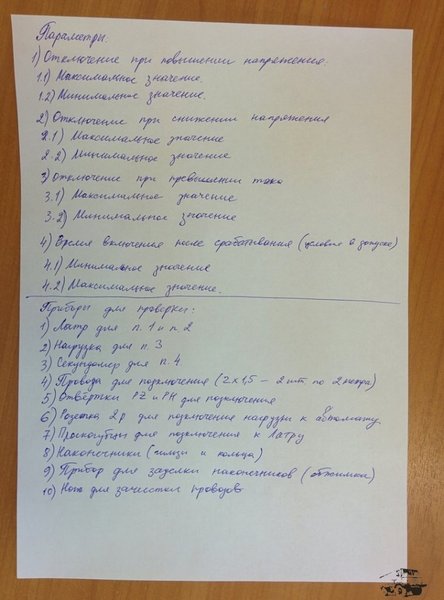 Параметры:
1) Отключение при повышении напряжения.
1.1) Максимальное значение.
1.2) Минимальное значение.
2) Отключение при снижении напряжения
2.1) Максимальное значение
2.2) Минимальное значение
3) Отключение при превышении тока
3.1) Максимальное значение
3.2) Минимальное значение
4) Время включения после срабатывания (условия в
4.1) Минимальное значение
4.2) Максимальное значение.
Приборы для проверки:
1) Латр для п. 1 и п. 2
2) Нагрузка для п. 3
3) Секундомер для п. 4
4) Провода для подключения (2х1,5 – 2 шт по 2 метра)
5) Отвёртки PZ и PH для подключения
6) Розетка 2р для подключения нагрузки к автомату
7) Плоскогубцы для подключения к Латру
8) Наконечники (гильзы и кольца)
9) Прибор для заделки наконечников (обжимка)
10) Нож для зачистки проводов